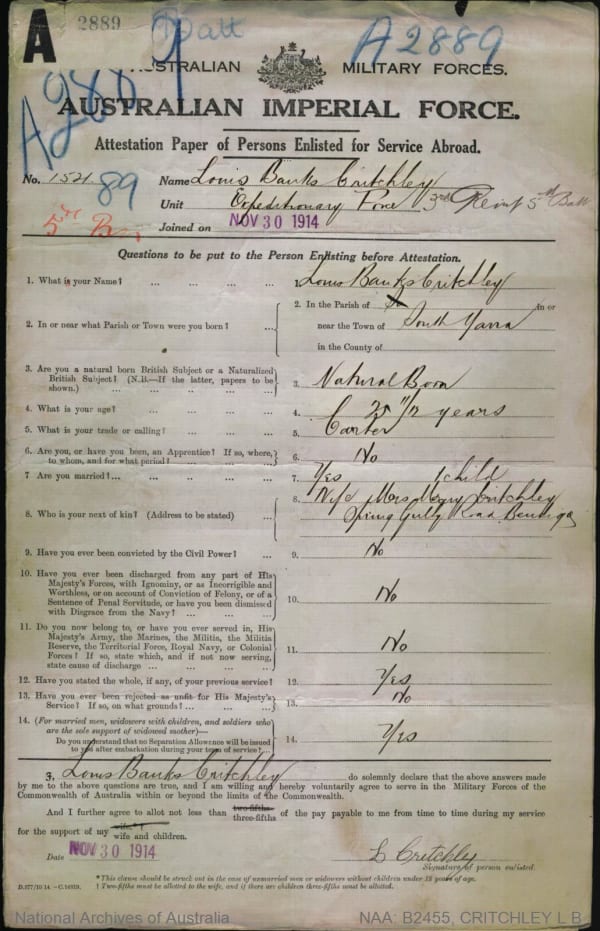 A 2889 Batt A2889
A2889
AUSTRALIAN MILITARY FORCES.
AUSTRALIAN IMPERIAL FORCE.
Attestation Paper of Persons Enlisted for Service Abroad.
No. 1521 89 Name Louis Banks Critchley
Unit Expeditionary Force 3rd Reinf 5th Batt
5th Bn Joined on NOV 30 1914
Questions to be put to the Person Enlisting before Attestation.
1. What is your Name? ... ... ... ... 1. Louis Banks Critchley
2. In or near what Parish or Town were you born? ... 2. In the Parish of in or
near the Town of South Yarra
in the County of
3. Are you a natural born British Subject or a Naturalized
British Subject? (N.B.—If the latter, papers to be
shown.) ... ... ... ... 3. Natural Born
4. What is your age? ... ... ... ... 4. 25 11/12 years
5. What is your trade or calling? ... ... ... 5. Carter
6. Are you, or have you been, an Apprentice? If so, where,
to whom, and for what period? ... ... ... 6. No
7 Are you married?... ... ... ... ... 7. Yes 1 child
8. Who is your next of kin? (Address to be stated) ... 8. Wife Mrs Mary Critchley
Spring Gully Road Bendigo
9. Have you ever been convicted by the Civil Power? ... 9. No
10. Have you ever been discharged from any part of His
Majesty's Forces, with Ignominy, or as Incorrigible and
Worthless, or on account of Conviction of Felony, or of a
Sentence of Penal Servitude, or have you been dismissed
with Disgrace from the Navy? ... ... ... 10. No
11. Do you now belong to, or have you ever served in, His
Majesty's Army, the Marines, the Militia, the Militia
Reserve, the Territorial Force, Royal Navy, or Colonial
Forces? If so, state which, and if not now serving,
state cause of discharge ... ... ... ... 11. No
12. Have you stated the whole, if any, of your previous service? 12. Yes
13. Have you ever been rejected as unfit for His Majesty's
Service? If so, on what grounds? ... ... ... 13. No
14. (For married men, widowers with children, and soldiers who
are the sole support of widowed mother)—
Do you understand that no Separation Allowance will be issued
to you after embarkation during your term of service?... 14. Yes
I, Louis Banks Critchley do solemnly declare that the above answers made
by me to the above questions are true, and I am willing and hereby voluntarily agree to serve in the Military Forces of the
Commonwealth of Australia within or beyond the limits of the Commonwealth.
And I further agree to allot not less than two-fifths three-fifths of the pay payable to me from time to time during my service
for the support of my wife † wife and children.
Date NOV 30 1914 L Critchley
Signature of person enlisted.
* This clause should be struck out in the case of unmarried men or widowers without children under 18 years of age.
D.377/10.14.—C.14619. † Two-fifths must be allotted to the wife, and if there are children three-fifths must be allotted.
National Archives of Australia NAA: B2455, CRITCHLEY L B